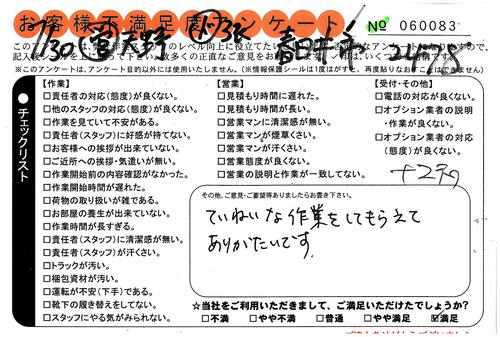 お客様不満足度アンケート
No 060083
7/30 吉野 春日井市 2478
【作業】
□責任者の対応(態度)が良くない。
□他のスタッフの対応(態度)が良くない。
□作業を見ていて不安がある。
□責任者(スタッフ)に好感が持てない。
□お客様への挨拶が出来ていない。
□ご近所への挨拶・気遣いが無い。
□作業開始前の内容確認がなかった。
□作業開始時間が遅れた。
□荷物の取り扱いが雑である。
□お部屋の養生が出来ていない。
□作業時間が長すぎる。
□責任者(スタッフ)に清潔感が無い。
□責任者(スタッフ)が汗くさい。
□トラックが汚い。
□梱包資材が汚い。
□運転が不安(下手)である。
□靴下の履き替えをしてない。
□スタッフにやる気がみられない。
【営業】
□見積もり時間に遅れた。
□見積もり時間が長い。
□営業マンに清潔感が無い。
□営業マンが煙草くさい。
□営業マンが汗くさい。
□営業態度が良くない。
□営業の説明と作業が一致してない。
【受付・その他】
□電話の対応が良くない。
□オプション業者の説明
・作業が良くない。
□オプション業者の対応
(態度)が良くない。
●チェックリスト
その他、ご意見・ご要望等ありましたらお書き下さい。
ていねいな作業をしてもらえて
ありがたいです。
☆当社をご利用いただきまして、ご満足いただけたでしょうか?
□不満 □やや不満 □普通 □やや満足 ☑満足